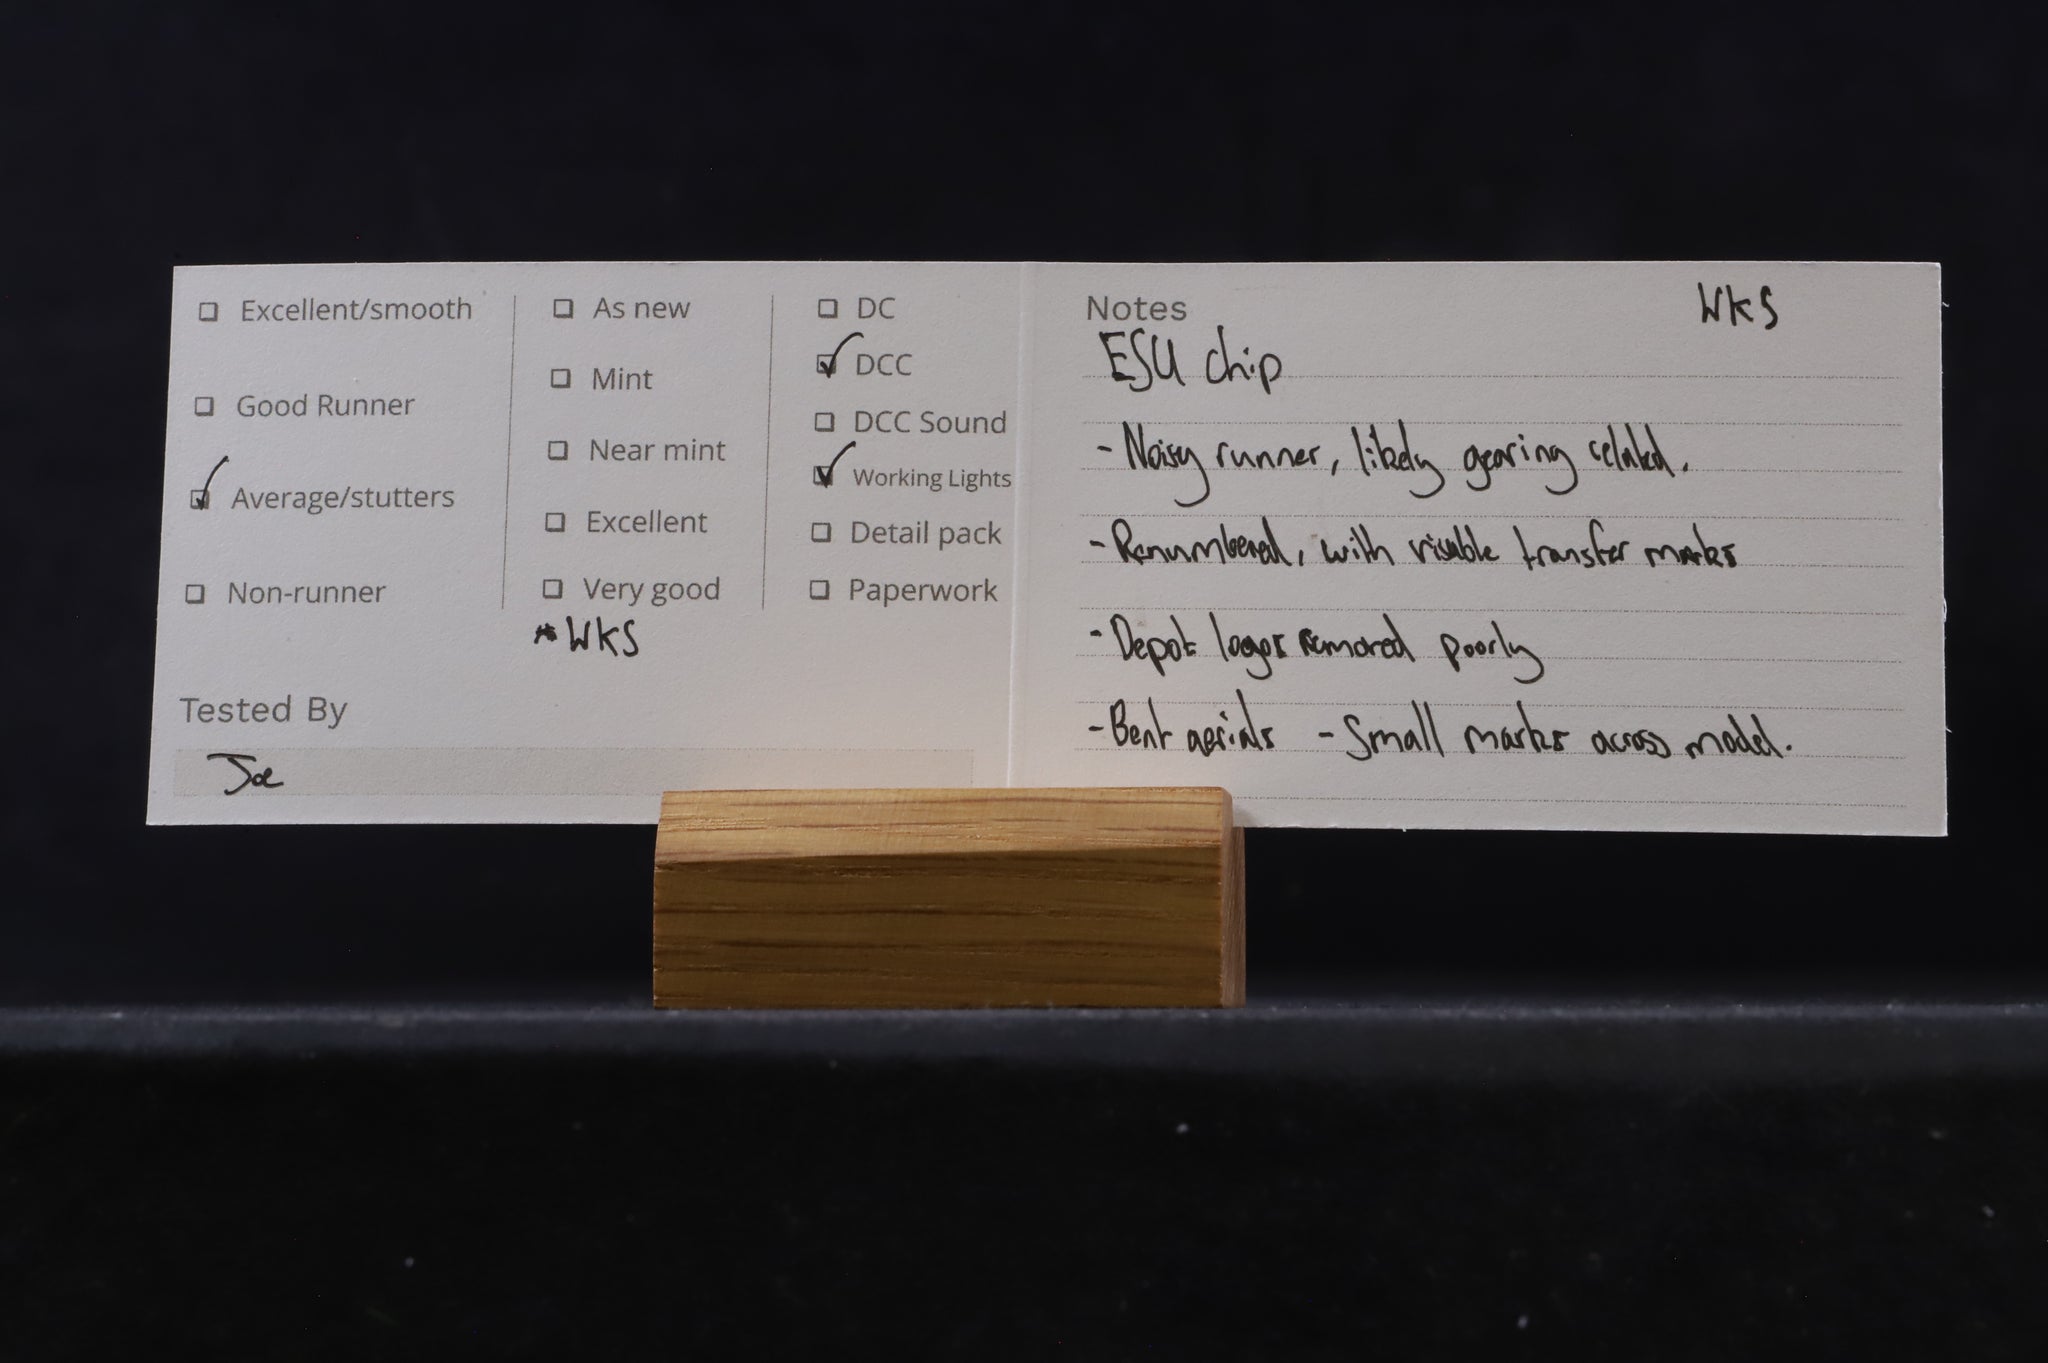 ☐ Excellent/smooth
☐ Good Runner
☑ Average/stutters
☐ Non-runner
☐ As new
☐ Mint
☐ Near mint
☐ Excellent
☐ Very good
* WKS
☐ DC
☑ DCC
☐ DCC Sound
☑ Working Lights
☐ Detail pack
☐ Paperwork
Tested By
Joe
Notes WKS
ESU chip
- Noisy runner, likely gearing related.
- Renumbered, with visable transfer marks
- Depot logos removed poorly
- Bent aerials - Small marks across model.